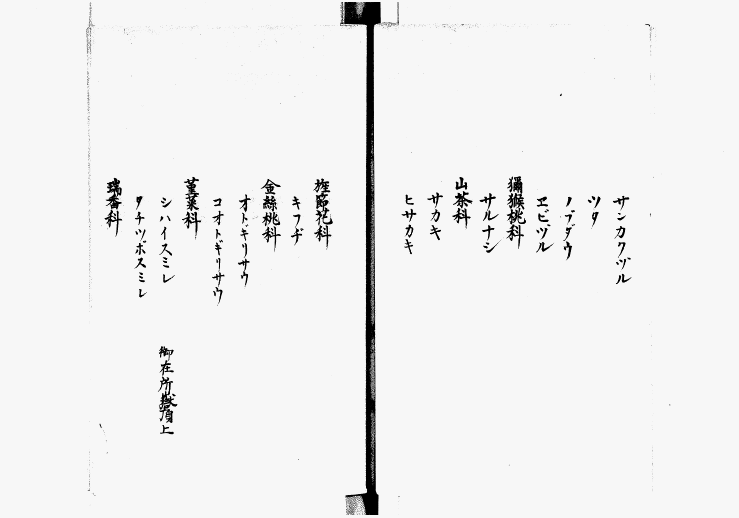 サンカクヅル
ツタ
ノブダウ
エビヅル
獼猴桃科
サルナシ
山茶科
サカキ
ヒサカキ
旌節花科
キフヂ
金絲桃科
オトギリサウ
コオトギリサウ
菫菜科
シハイスミレ 御在所嶽頂上
タチツボスミレ
瑞香科